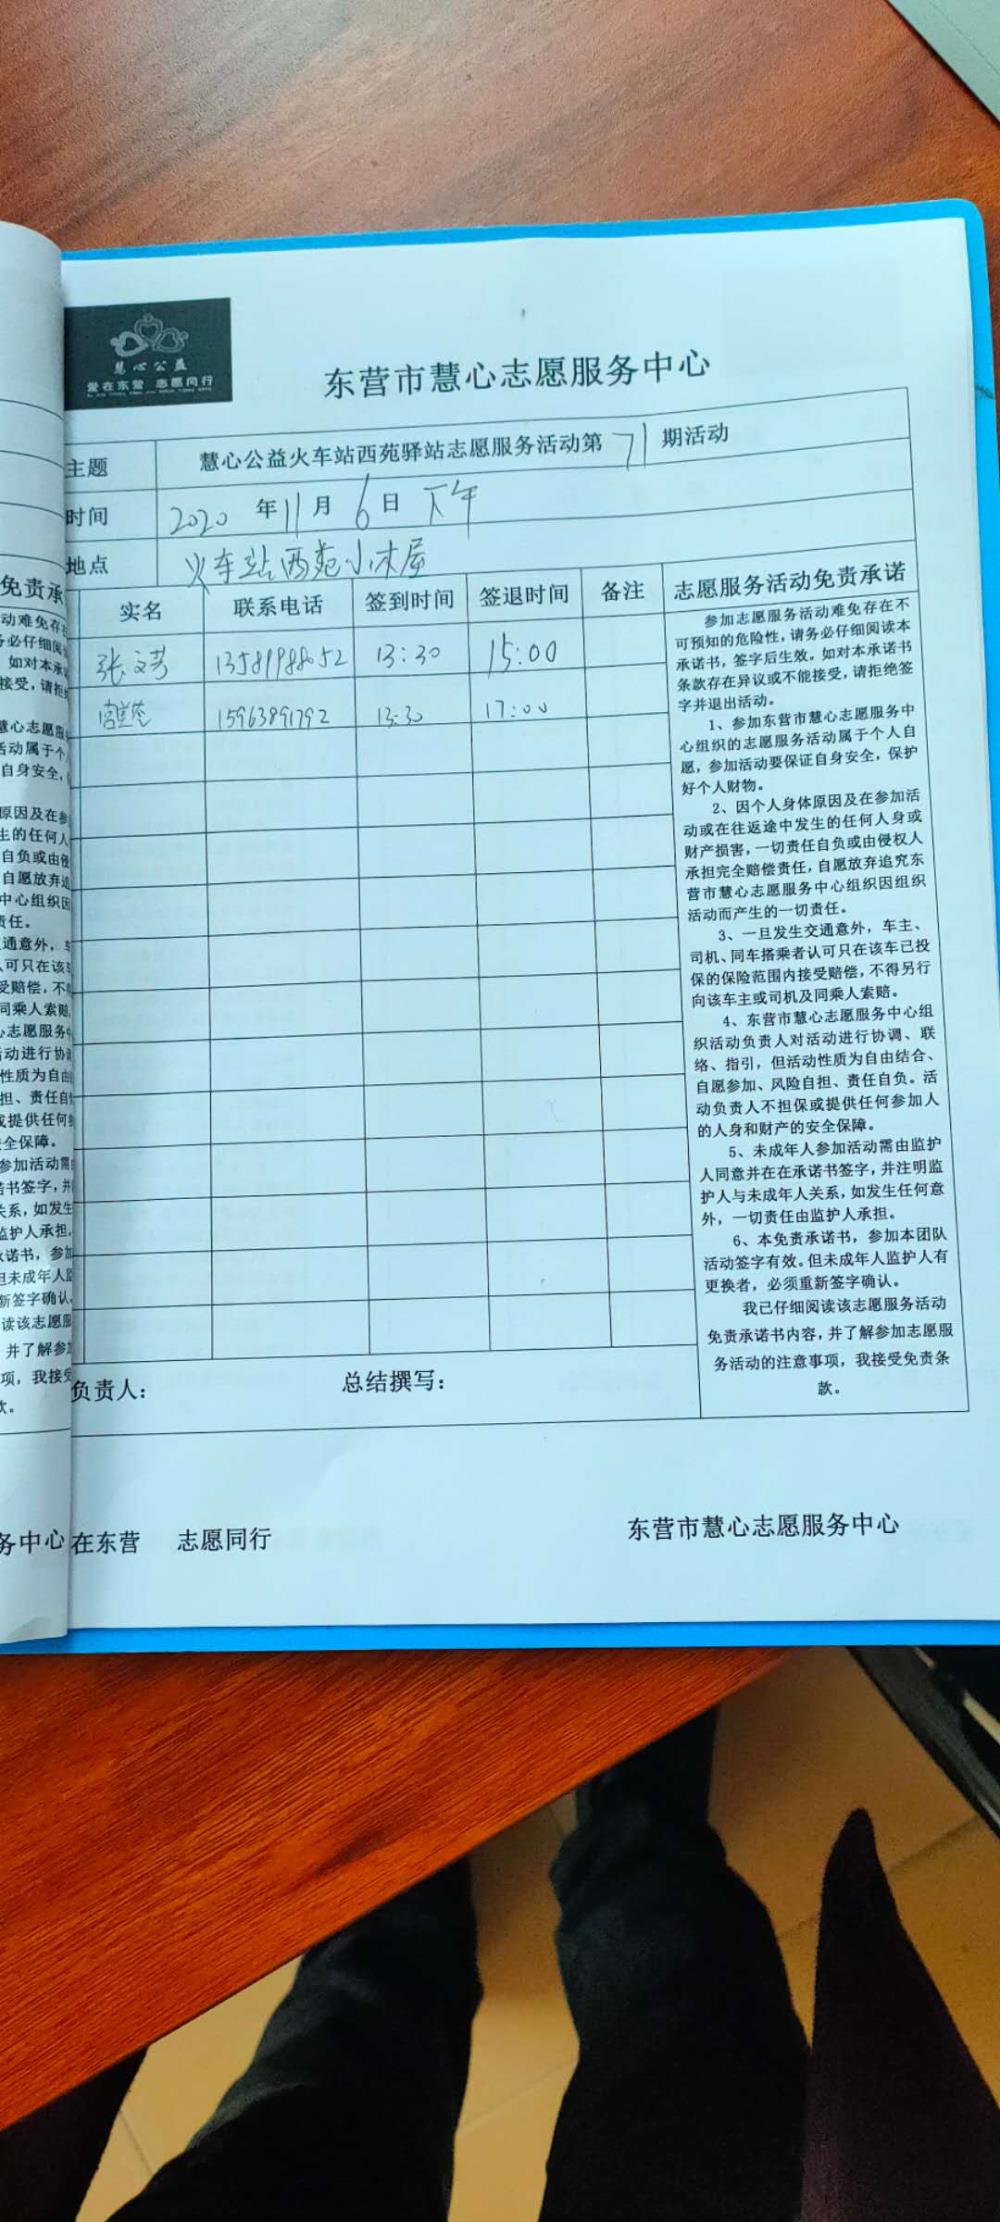 慧心公益
爱在东营 志愿同行
东营市慧心志愿服务中心
主题 慧心公益火车站西苑驿站志愿服务活动第71期活动
时间 2020年11月6日 下午
地点 火车站西苑小木屋
实名 联系电话 签到时间 签退时间 备注 志愿服务活动免责承诺
张文芳 13589988052 13:30 15:00
15963891792 13:30 17:00
参加志愿服务活动难免存在不
可预知的危险性，请务必仔细阅读本
承诺书，签字后生效。如对本承诺书
条款存在异议或不能接受，请拒绝签
字并退出活动。
1、参加东营市慧心志愿服务中
心组织的志愿服务活动属于个人自
愿，参加活动要保证自身安全，保护
好个人财物。
2、因个人身体原因及在参加活
动或在往返途中发生的任何人身或
财产损害，一切责任自负或由侵权人
承担完全赔偿责任，自愿放弃追究东
营市慧心志愿服务中心组织因组织
活动而产生的一切责任。
3、一旦发生交通意外，车主、
司机、同车搭乘者认可只在该车已投
保的保险范围内接受赔偿，不得另行
向该车主或司机及同乘人索赔。
4、东营市慧心志愿服务中心组
织活动负责人对活动进行协调、联
络、指引，但活动性质为自由结合、
自愿参加、风险自担、责任自负。活
动负责人不担保或提供任何参加人
的人身和财产的安全保障。
5、未成年人参加活动需由监护
人同意并在在承诺书签字，并注明监
护人与未成年人关系，如发生任何意
外，一切责任由监护人承担。
6、本免责承诺书，参加本团队
活动签字有效。但未成年人监护人有
更换者，必须重新签字确认。
我已仔细阅读该志愿服务活动
免责承诺书内容，并了解参加志愿服
务活动的注意事项，我接受免责条
款。
负责人： 总结撰写：
在东营 志愿同行 东营市慧心志愿服务中心